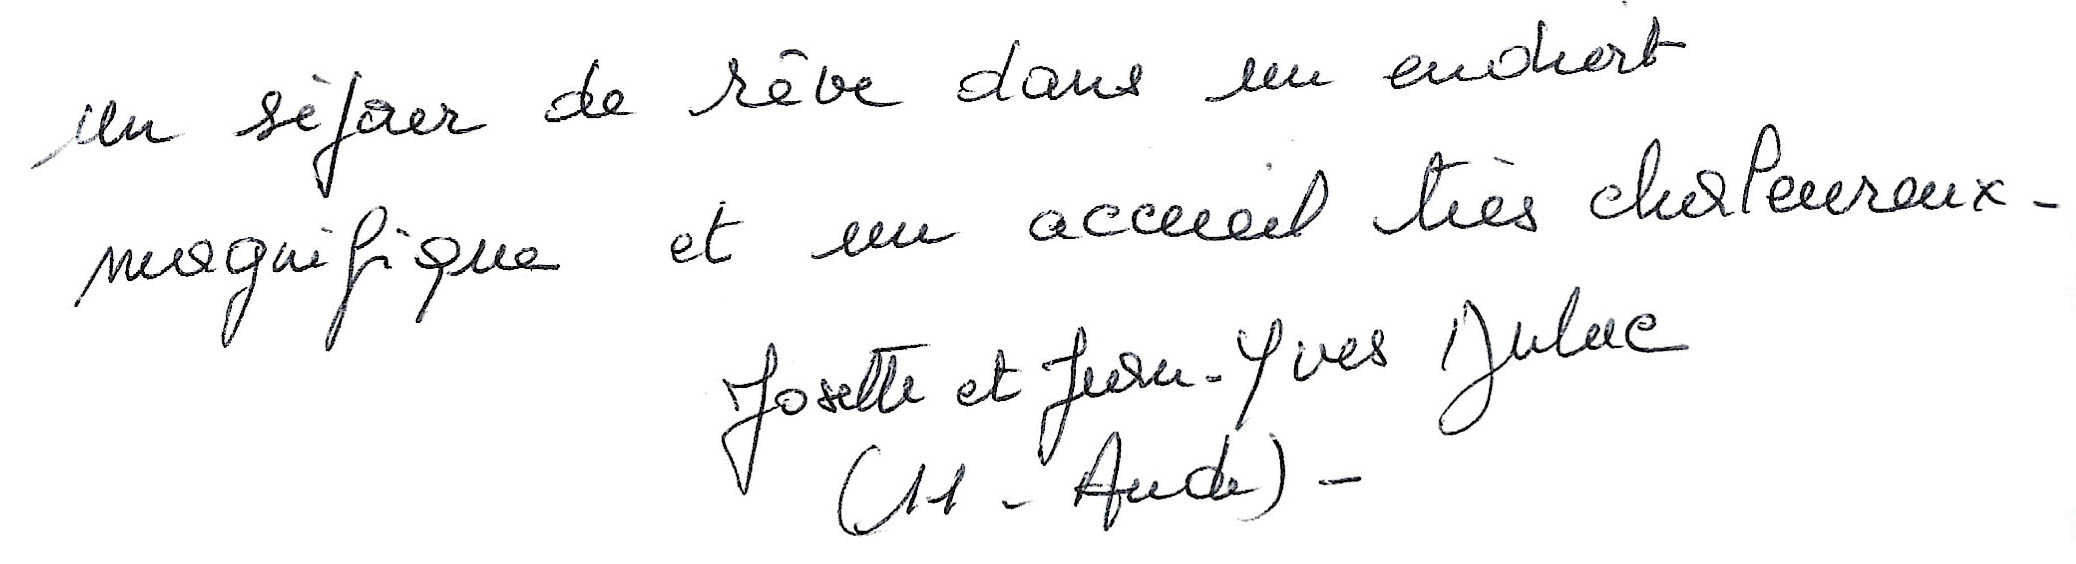 un séjour de rêve dans un endroit
magnifique et un accueil très chaleureux -
Josette et Jean-Yves Duluc
(11 - Aude) -